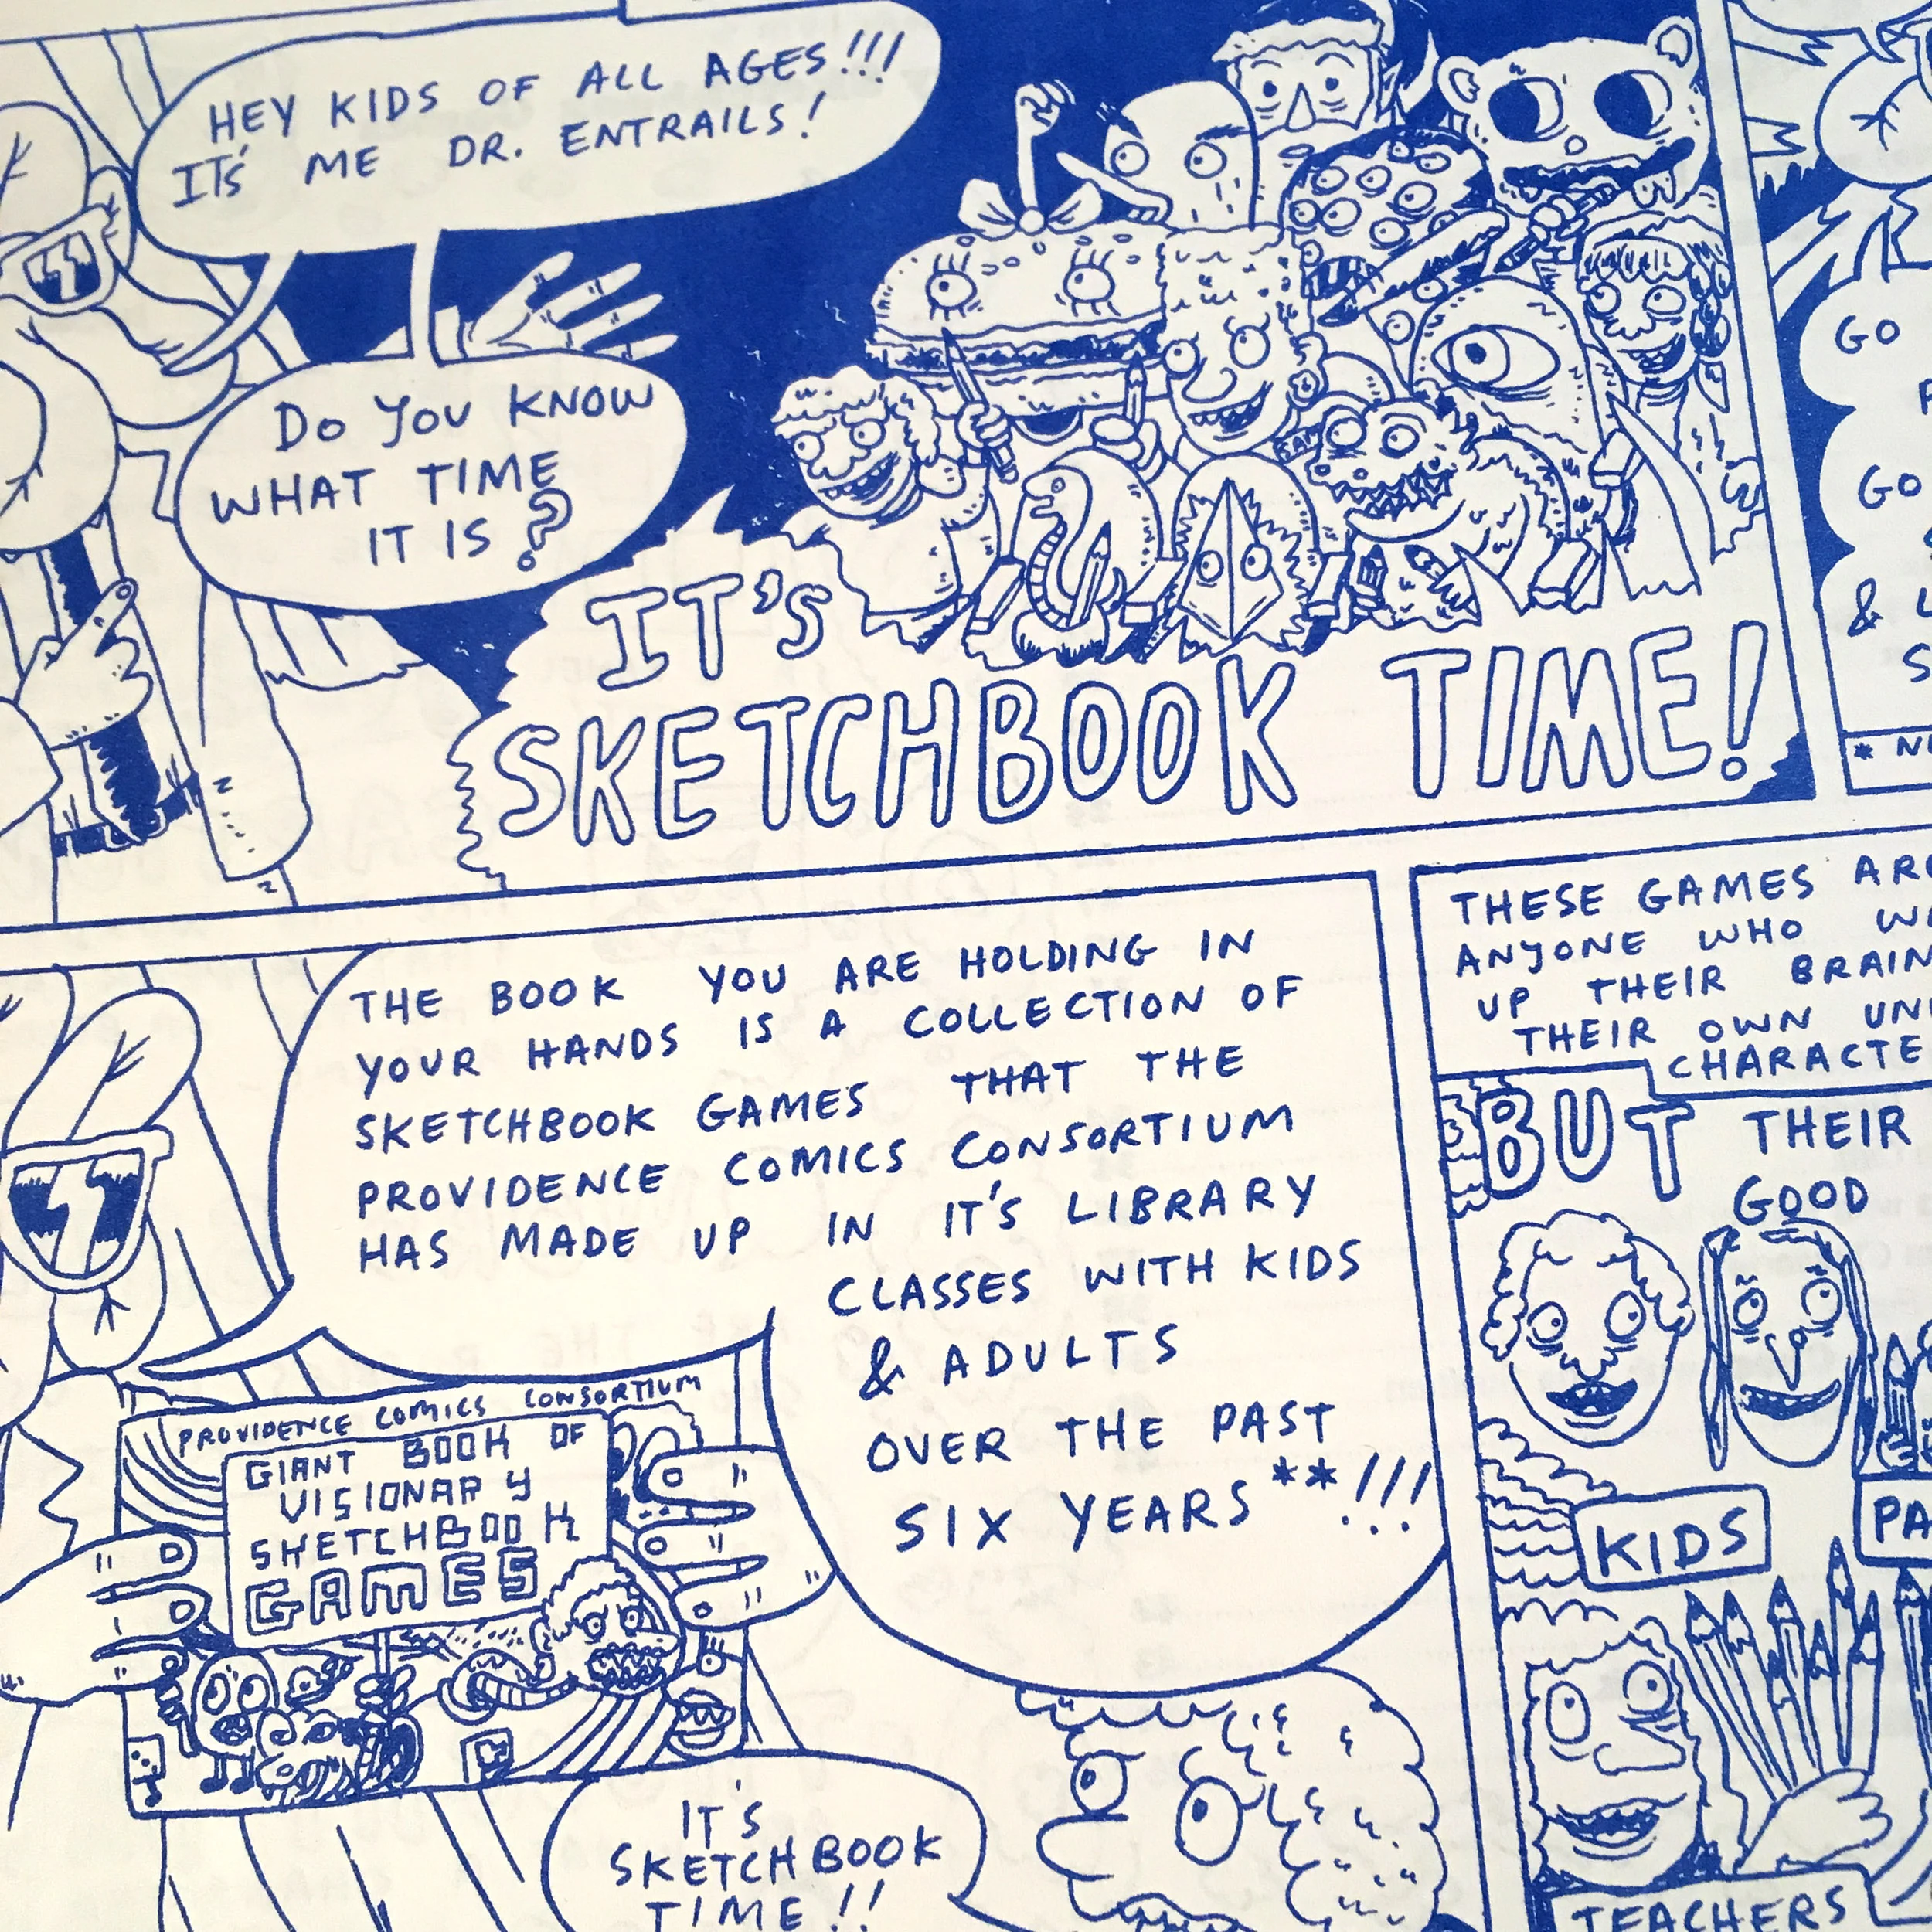 HEY KIDS OF ALL AGES!!!
IT'S ME DR. ENTRAILS!
DO YOU KNOW
WHAT TIME
IT IS?
IT'S
SKETCHBOOK TIME!
GO
GO
&
*
THE BOOK YOU ARE HOLDING IN
YOUR HANDS IS A COLLECTION OF
SKETCHBOOK GAMES THAT THE
PROVIDENCE COMICS CONSORTIUM
HAS MADE UP IN IT'S LIBRARY
CLASSES WITH KIDS
& ADULTS
OVER THE PAST
SIX YEARS**!!!
PROVIDENCE COMICS CONSORTIUM
GIANT BOOK OF
VISIONARY
SKETCHBOOK
GAMES
IT'S
SKETCHBOOK
TIME!!
THESE GAMES ARE
ANYONE WHO
UP THEIR BRAIN
THEIR OWN
BUT THEIR
GOOD
KIDS
TEACHERS